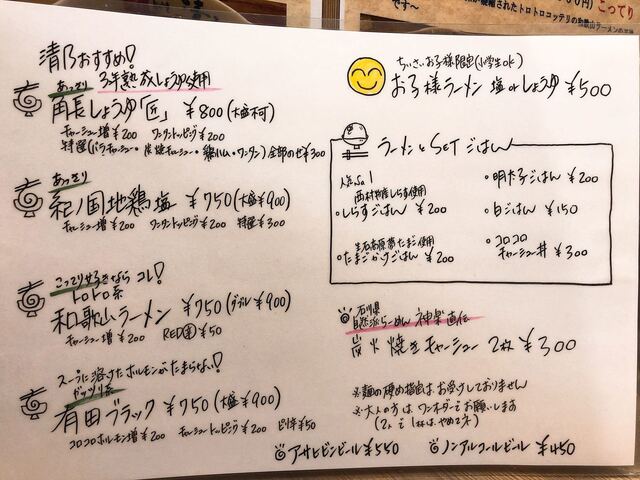 清乃おすすめ!
3年熟成しょうゆ使用
あっさり
角長しょうゆ「匠」 ¥800(大盛不可)
チャーシュー増¥200 ワンタントッピング¥200
特選(バラチャーシュー・炭焼チャーシュー・鶏ハム・ワンタン)全部のせ¥300
あっさり
紀ノ国地鶏塩 ¥750(大盛¥900)
チャーシュー増¥200 ワンタントッピング¥200 特選¥300
こってり好きなら コレ!
トロトロ系
和歌山ラーメン ¥750(ダブル¥900)
チャーシュー増¥200 RED(辛)¥50
スープに溶けたホルモンがたまらない!
ガッツリ系
有田ブラック ¥750(大盛¥900)
コロコロホルモン増¥200 チャーシュートッピング¥200 ピリ辛¥50
ちいさいお子様限定(小学生ok)
お子様ラーメン 塩orしょうゆ ¥500
ラーメンとSETごはん
人気No1
西村物産しらす使用
・しらすごはん ¥200
生石高原夢たまご使用
・たまごかけごはん ¥200
・明太子ごはん ¥200
・白ごはん ¥150
・コロコロ
チャーシュー丼 ¥300
石川県
自然派らーめん 神楽直伝
炭火焼きチャーシュー 2枚 ¥300
※麺の硬め指定は、お受けしておりません
※大人の方は、ワンオーダーでお願いします
(2人で1杯は、やめてネ)
◎アサヒビンビール¥550 ◎ノンアルコールビール ¥450
こってり
されたトロトロコッテリの和歌山ラーメンの王道
です〜